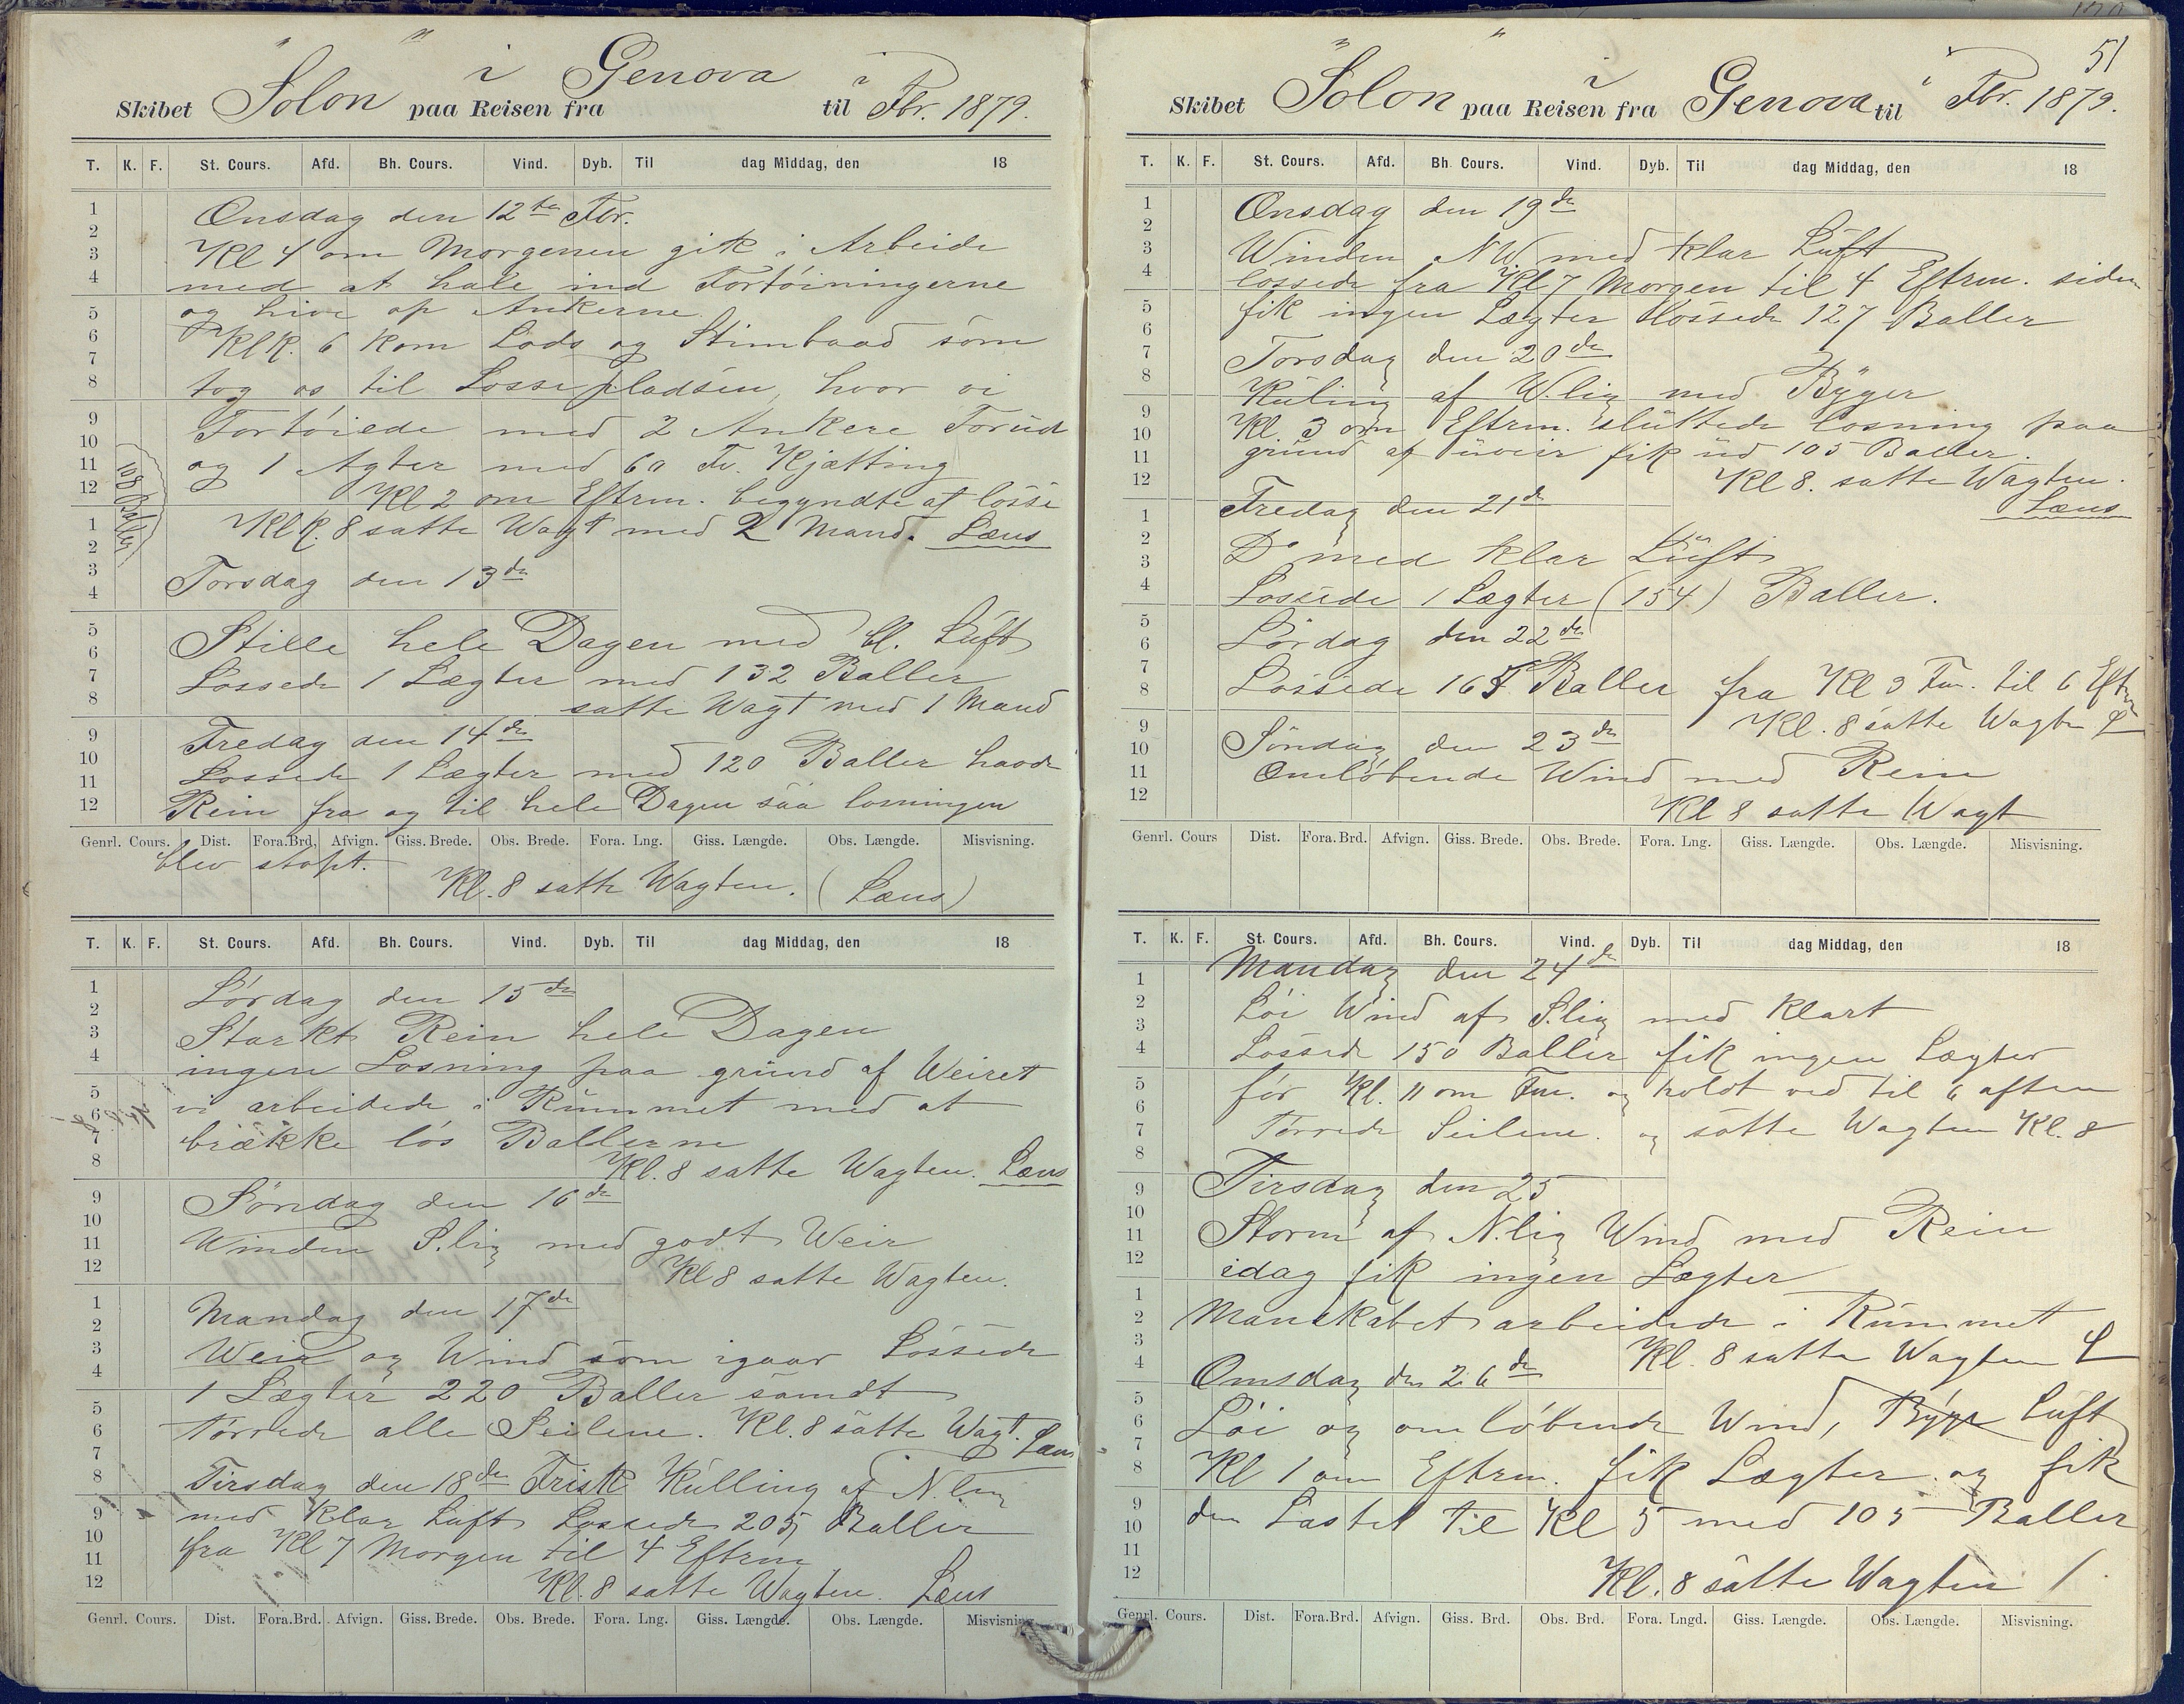 Skibet "Solon" paa Reisen fra i Genova til i Fbr. 1879.
T. K. F. St. Cours. Afd. Bh. Cours. Vind. Dyb. Til dag Middag, den 18
1
2
3
4
5
6
7
8
9
10
11
12
1
2
3
4
5
6
7
8
9
10
11
12
Onsdag den 12te Fbr.
Kl 4 om Morgenen gik i Arbeide
med at hale ind Fortöiningerne
og hive op Ankerne.
KlK. 6 kom Lods og Stimbaad som
tog os til Lossepladsen, hvor vi
Fortöiede med 2 Ankere Forud
og 1 Agter med 60 Fv. Kjætting
108 Baller
Kl 2 om Eftrm. begyndte at losse
KlK. 8 satte Wagt med 2 Mand. Læns
Torsdag den 13de
Stille hele Dagen med kl. Luft
Lossede 1 Lægter med 132 Baller
satte Wagt med 1 Mand
Fredag den 14de
Lossede 1 Lægter med 120 Baller havde
Rein fra og til hele Dagen saa losningen
Genrl. Cours. Dist. Fora.Brd. Afvign. Giss. Brede. Obs. Brede. Fora. Lng. Giss. Længde. Obs. Længde. Misvisning.
blev stopt.
Kl. 8 satte Wagten. (Læns)
T. K. F. St. Cours. Afd. Bh. Cours. Vind. Dyb. Til dag Middag, den 18
1
2
3
4
5
6
7
8
9
10
11
12
1
2
3
4
5
6
7
8
9
10
11
12
Lördag den 15de
Starkt Rein hele Dagen
ingen Losning paa grund af Weiret
vi arbeidede i Rummet med at
brække lös Ballerne
Kl. 8 satte Wagten. Læns
Söndag den 16de
Winden S.lig med godt Weir
Kl 8 satte Wagten.
Mandag den 17de
Weir og Wind som igaar Lossede
1 Lægter 220 Baller samdt
törrede alle Seilene. Kl. 8 satte Wagt. Læns
Tirsdag den 18de Frisk Kulling af N.lig
med Klar Luft Lossede 205 Baller
fra Kl 7 Morgen til 4 Eftrm
Kl. 8 satte Wagten. Læns
Genrl. Cours. Dist. Fora.Brd. Afvign. Giss. Brede. Obs. Brede. Fora. Lng. Giss. Længde. Obs. Længde. Misvisning.
51
Skibet "Solon" paa Reisen fra i Genova til i Fbr. 1879.
T. K. F. St. Cours. Afd. Bh. Cours. Vind. Dyb. Til dag Middag, den 18
1
2
3
4
5
6
7
8
9
10
11
12
1
2
3
4
5
6
7
8
9
10
11
12
Onsdag den 19de
Winden NW. med klar Luft
lossede fra Kl 7 Morgen til 4 Eftrm. siden
fik ingen Lægter Lossede 127 Baller
Torsdag den 20de
Kuling af W.lig med Byger
Kl. 3 om Eftrm. sluttede losning paa
grund af uveir fik ud 105 Baller.
Kl 8. satte Wagten.
Læns
Fredag den 21de
Do med klar Luft
Lossede 1 Lægter (154) Baller.
Lördag den 22de
Lossede 165 Baller fra Kl 9 Fm. til 6 Eftm
Kl. 8 satte Wagten L
Söndag den 23de
Omlöbende Wind med Rein
Kl 8 satte Wagt
Genrl. Cours Dist. Fora.Brd. Afvign. Giss. Brede. Obs. Brede. Fora. Lng. Giss. Længde. Obs. Længde. Misvisning.
T. K. F. St. Cours. Afd. Bh. Cours. Vind. Dyb. Til dag Middag, den 18
1
2
3
4
5
6
7
8
9
10
11
12
1
2
3
4
5
6
7
8
9
10
11
12
Mandag den 24de
Löi Wind af S.lig med Klart
Lossede 150 Baller fik ingen Lægter
för Kl. 11 om Fm. og holdt ved til 6 aften
Törrede Seilene. og satte Wagten Kl. 8
Tirsdag den 25
Storm af N.lig Wind med Rein
idag fik ingen Lægter
Manskabet arbeidede i Rummet
Kl. 8 satte Wagten L
Onsdag den 26de
Löi og omlöbende Wind, Byge Luft
Kl 1 om Eftrm. fik Lægter og fik
den Lastet til Kl 5 med 105 Baller
Kl. 8 satte Wagten
Genrl. Cours. Dist. Fora.Brd. Afvign. Giss. Brd. Obs. Brd. Fora. Lngd. Giss. Længde. Obs. Længde. Misvisning.